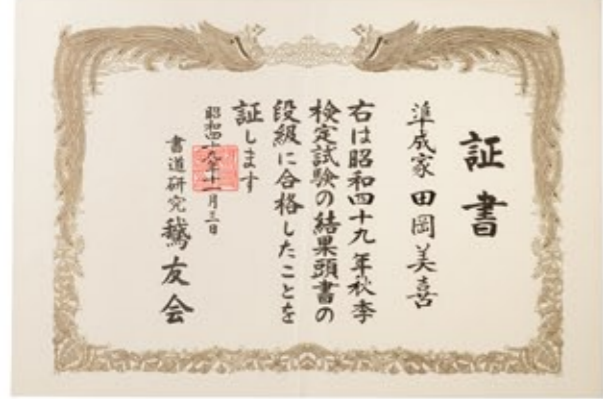 証書
準成家 田岡美喜
右は昭和四十九年秋季
検定試験の結果頭書の
段級に合格したことを
証します
昭和四十九年十一月三日
書道研究 鵞友会